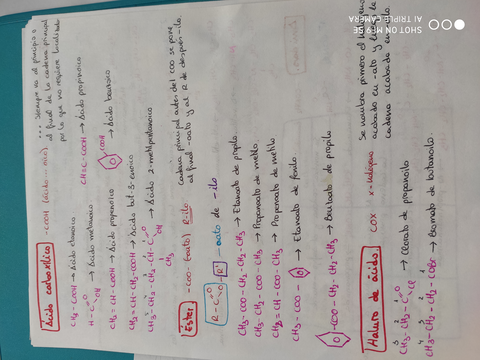 Ácido carboxílico -COOH (ácido ... oico) ... Siempre va al principio o
al final de la cadena principal
por lo que no requiere localizador
CH3-COOH → Ácido etanoico
CH≡C-COOH → Ácido propinoico
H-C=O OH → Ácido metanoico
CH2=CH-COOH → Ácido propenoico
COOH → Ácido benzoico
CH2=CH-CH2-COOH → Ácido but-3-enoico
CH3-CH2-CH-C=O OH → Ácido 2-metilbutanoico
CH3
Éster -COO- (oato) R-ilo
cadena principal antes del COO se pone
al final -oato y al R de después -ilo.
R-C=O O-R' -oato de -ilo
CH3-COO-CH2-CH2-CH3 → Etanoato de propilo
CH3-CH2-COO-CH3 → Propanoato de metilo
CH2=CH-COO-CH3 → Propenoato de metilo
CH3-COO- → Etanoato de fenilo
-COO-CH2-CH2-CH3 → Benzoato de propilo
Haluro de ácido COX X=halógeno
Se nombra primero el halógeno
acabado en -uro y
cadena acabada en
3 2 1
CH3-CH2-C=O Cl → Cloruro de propanoilo
4 3 2 1
CH3-CH2-CH2-COBr → Bromuro de butanoilo
MI 9 SE
AI TRIPLE CAMERA